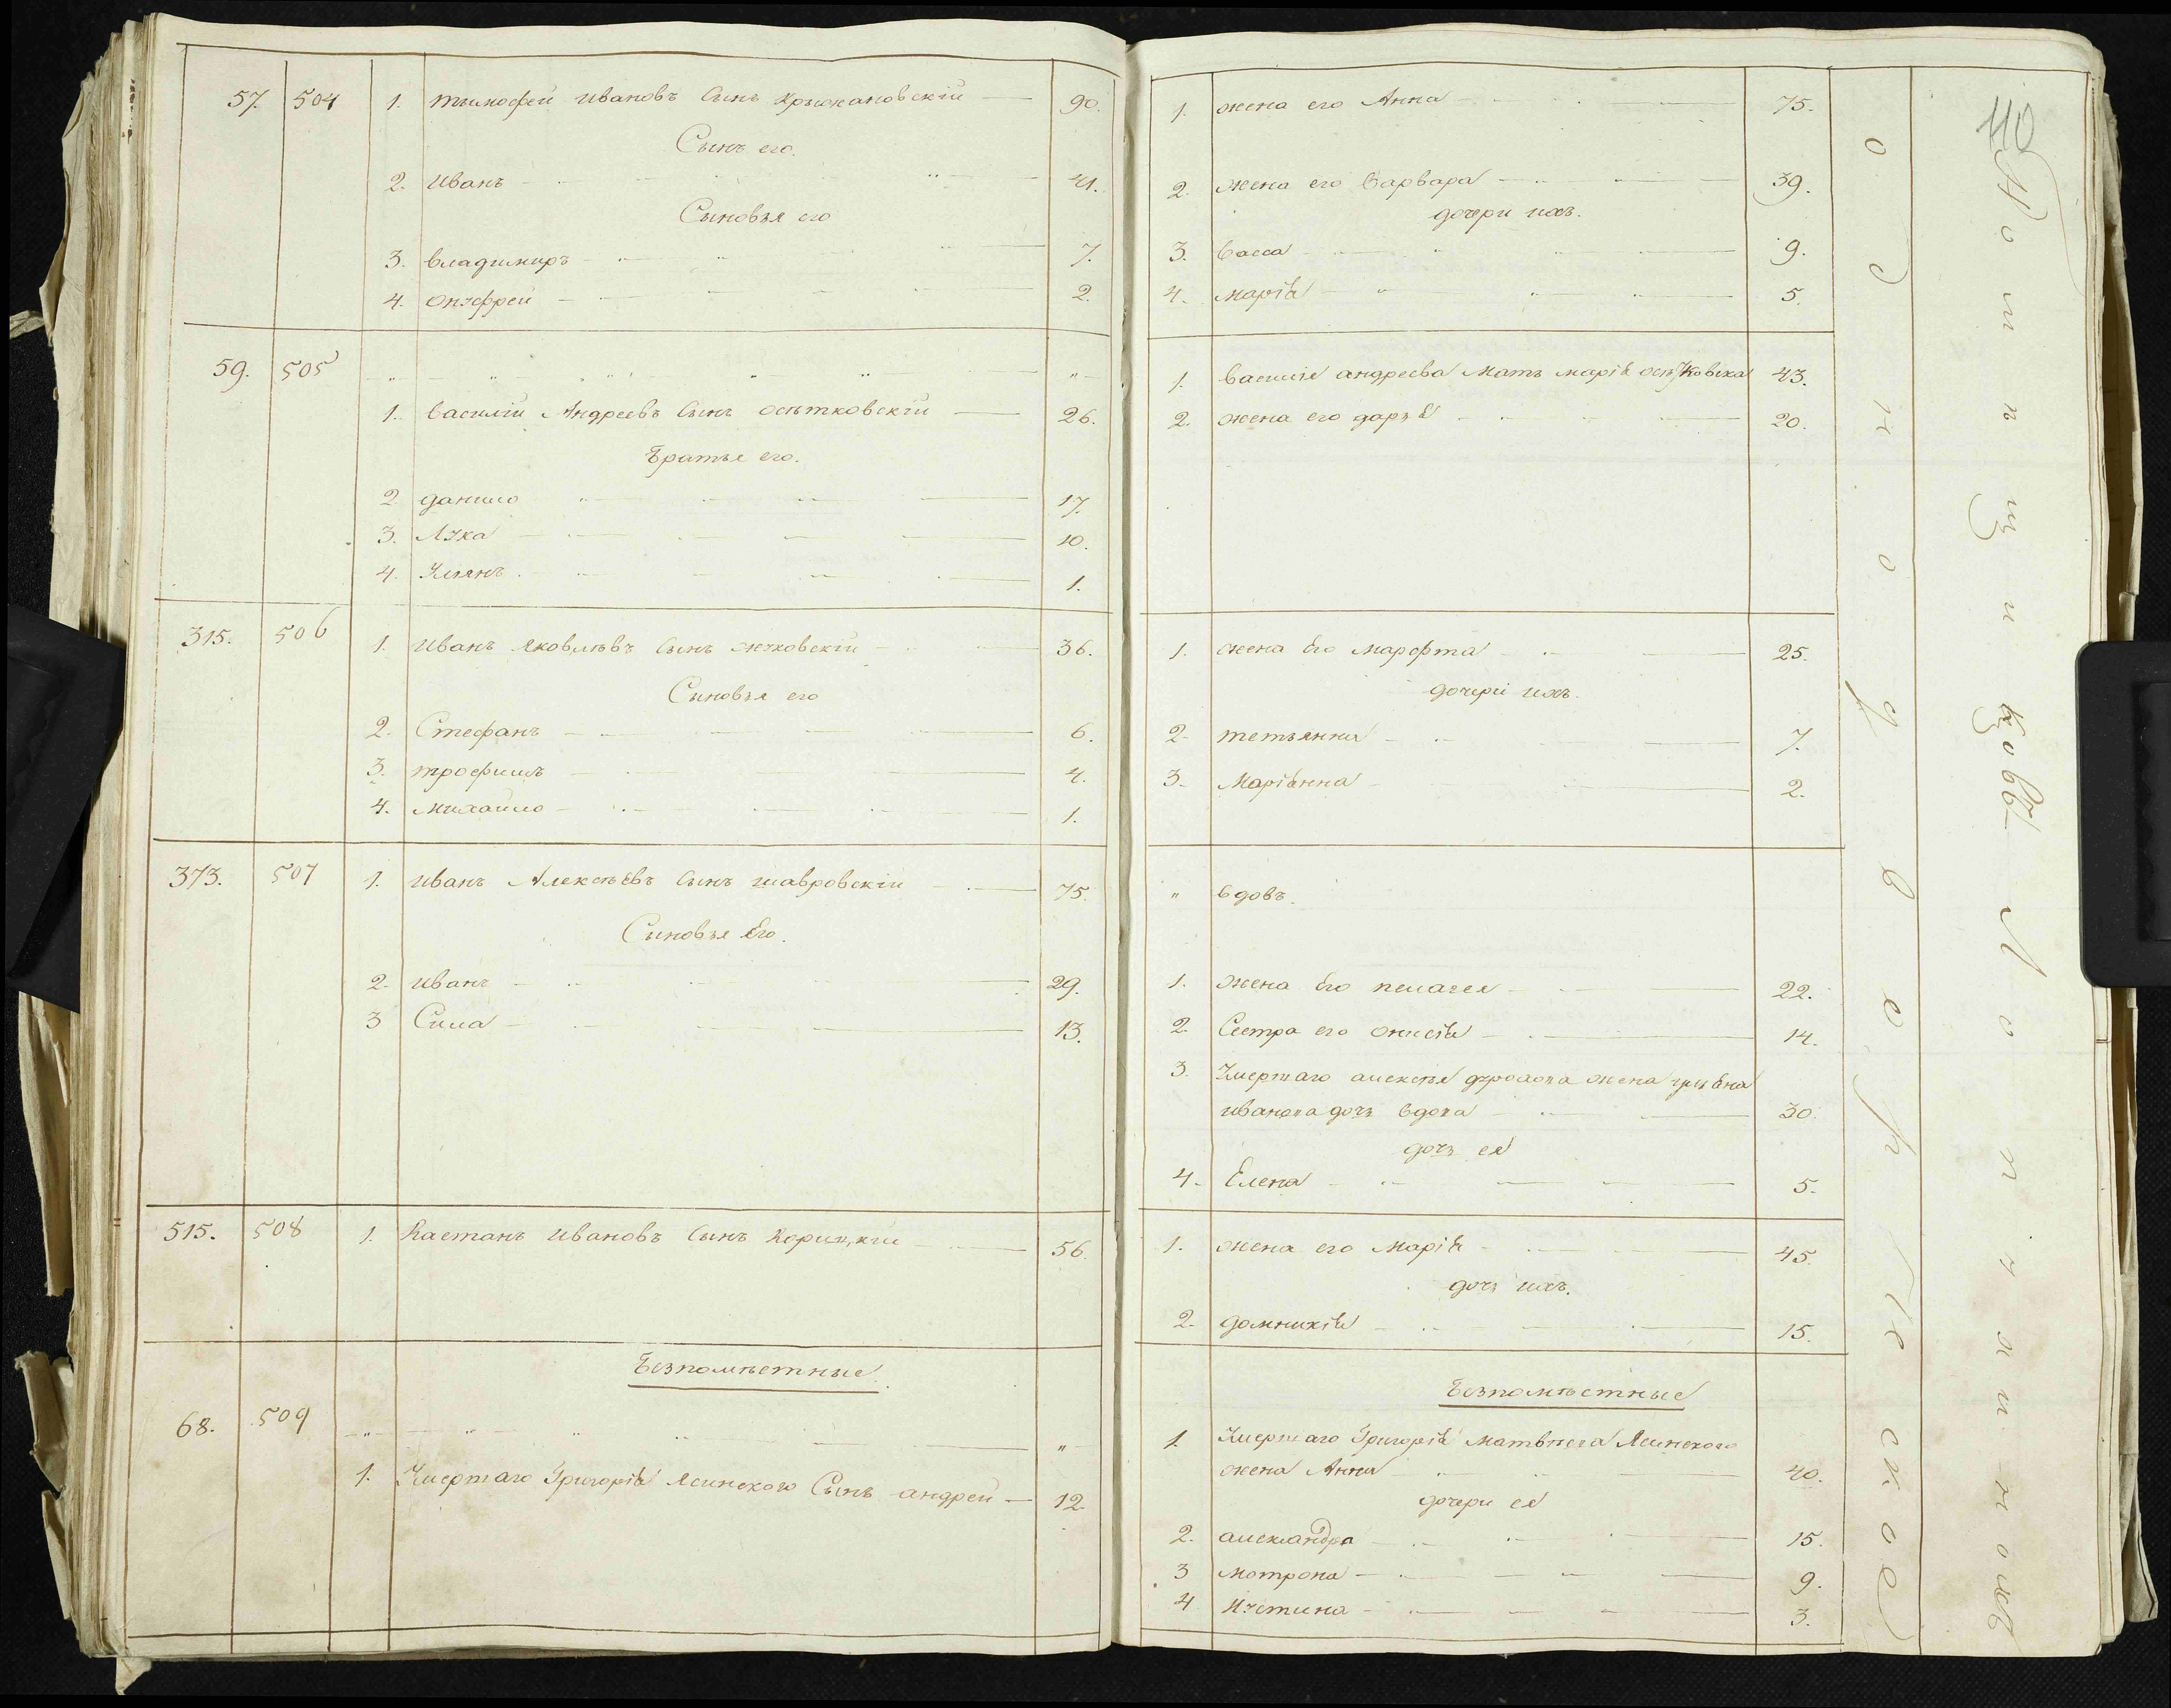 57. 504 1. тимофей ивановъ Сынъ Крыжановскій 90.
Сынъ его.
2. иванъ 41.
Сыновья его
3. владимиръ 7.
4. онуфрей 2.
59. 505
1. василій Андреевъ Сынъ осѣтковскій 26.
Братья его.
2 данило 17.
3. Лука 10.
4. Улянъ 1.
315. 506 1. иванъ яковлѣвъ Сынъ жуковскій 36.
Сыновья его
2. Стефанъ 6.
3. трофимъ 4.
4. михайло 1.
373. 507 1. иванъ Алексѣевъ Сынъ шавровскій 75.
Сыновья Его.
2. иванъ 29.
3 Сила 13.
515. 508 1. Каетанъ ивановъ Сынъ Корицкій 56.
Безпомѣстные.
68. 509
1. Умершаго Григорія Ясинского Сынъ андрей 12.
110
1. жена его Анна 75.
2. жена его варвара 39.
дочери ихъ.
3. васса 9.
4. марія 5.
1. василія андреева мать марія 43.
2. жена его дарья 20.
1. жена Его марфта 25.
дочери ихъ.
2. тетьянна 7.
3. Маріянна 2.
" вдовъ.
1. жена Его пелагея 22.
2. Сестра его онисія 14.
3. Умершаго алексѣя жена
иванова дочь вдова 30.
дочь ея
4. Елена 5.
1. жена его марія 45.
дочь ихъ.
2. домникія 15.
Безпомѣстные
1. Умершаго Григорія матвѣева Ясинского
жена Анна 40.
дочери ея
2. александра 15.
3 мотрона 9.
4 Иустина 3.